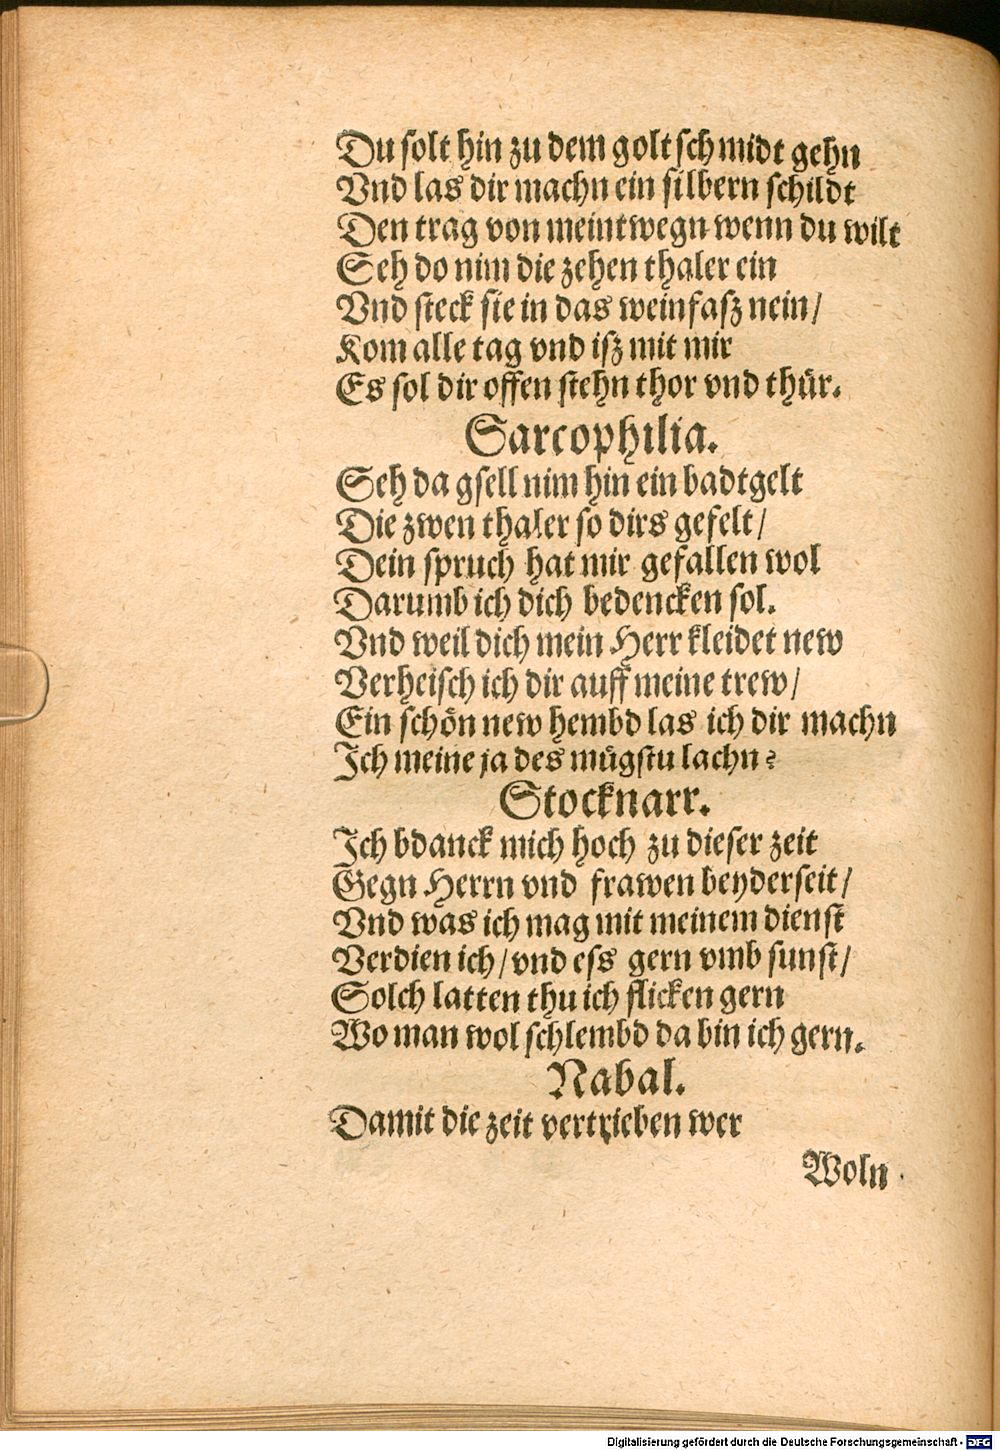 Du solt hin zu dem goltschmidt gehn
Vnd las dir machn ein silbern schildt
Den trag von meintwegn wenn du wilt
Seh do nim die zehen thaler ein
Vnd steck sie in das weinfasz nein/
Kom alle tag vnd isz mit mir
Es sol dir offen stehn thor vnd thür.
Sarcophilia.
Seh da gsell nim hin ein badtgelt
Die zwen thaler so dirs gefelt/
Dein spruch hat mir gefallen wol
Darumb ich dich bedencken sol.
Vnd weil dich mein Herr kleidet new
Verheisch ich dir auff meine trew/
Ein schön new hembd las ich dir machn
Ich meine ja des mügstu lachn?
Stocknarr.
Ich bdanck mich hoch zu dieser zeit
Gegn Herrn vnd frawen beyderseit/
Vnd was ich mag mit meinem dienst
Verdien ich/vnd ess gern vmb sunst/
Solch latten thu ich flicken gern
Wo man wol schlembd da bin ich gern.
Nabal.
Damit die zeit vertrieben wer
Woln
Digitalisierung gefördert durch die Deutsche Forschungsgemeinschaft - DFG